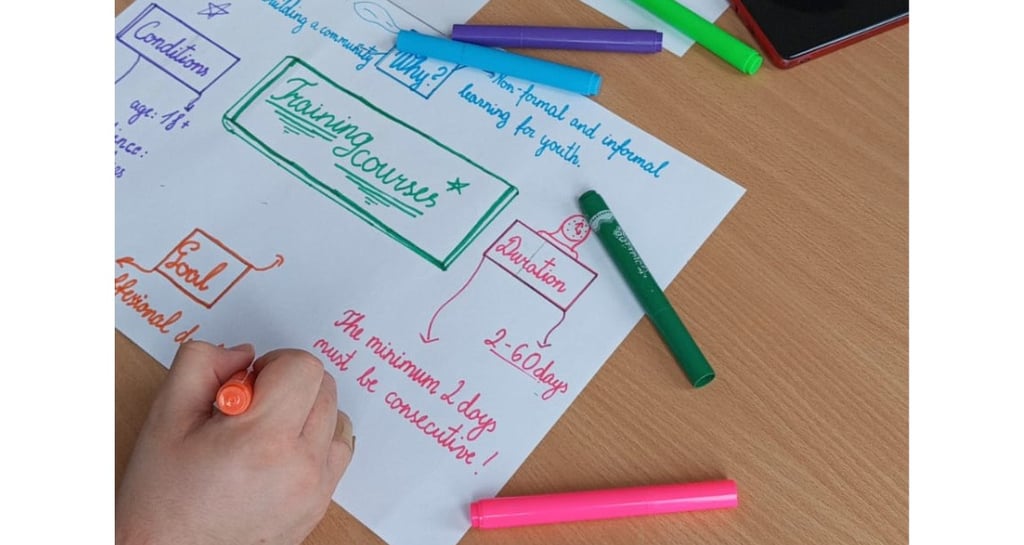 Conditions
age: 18+
building a community
Why?
Non-formal and informal
learning for youth.
Training
courses
Goal
Duration
2-60 days
The minimum 2 days
must be consecutive!